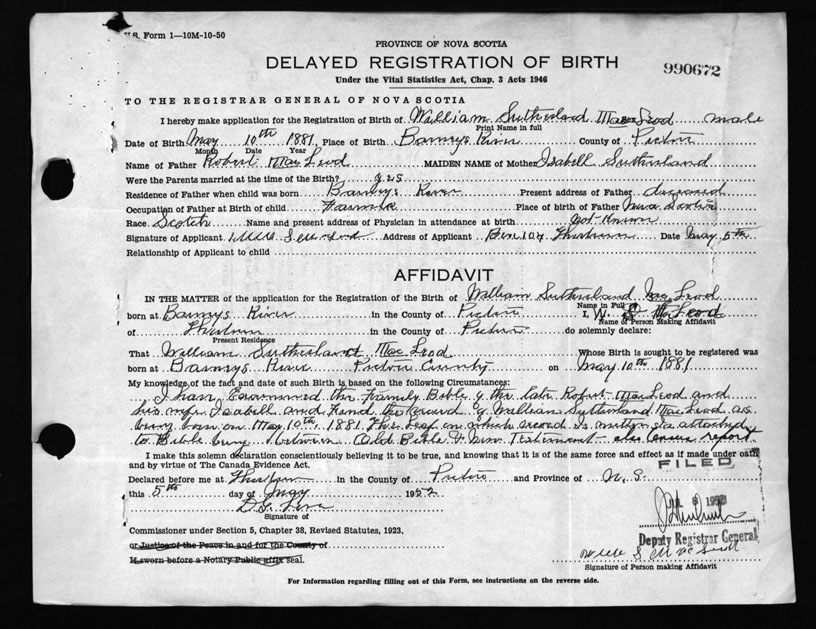 V.S. Form 1—10M-10-50
PROVINCE OF NOVA SCOTIA
DELAYED REGISTRATION OF BIRTH
990672
Under the Vital Statistics Act, Chap. 3 Acts 1946
TO THE REGISTRAR GENERAL OF NOVA SCOTIA
I hereby make application for the Registration of Birth of William Sutherland MacLeod Sex male
Print Name in full
Date of Birth May 10th 1881 Place of Birth Barneys River County of Pictou
Month Date Year
Name of Father Robert MacLeod MAIDEN NAME of Mother Isabell Sutherland
Were the Parents married at the time of the Birth? yes
Residence of Father when child was born Barneys River Present address of Father deceased
Occupation of Father at Birth of child Farmer Place of birth of Father Nova Scotia
Race Scotch Name and present address of Physician in attendance at birth not Known
Signature of Applicant Address of Applicant Box 104 Thorburn Date May 5th
Relationship of Applicant to child
AFFIDAVIT
IN THE MATTER of the application for the Registration of the Birth of William Sutherland MacLeod
Name in Full
born at Barneys River in the County of Pictou I, W. S. MacLeod
Name of Person Making Affidavit
of Thorburn in the County of Pictou do solemnly declare:
Present Residence
That William Sutherland MacLeod Whose Birth is sought to be registered was
born at Barneys River Pictou County on May 10th 1881
My knowledge of the fact and date of such Birth is based on the following Circumstances:
I have Examined the Family Bible of the late Robert MacLeod and
his wife Isabell and Found the record of William Sutherland MacLeod as
being born on May 10th 1881 The Leaf on which record is written is attached
to Bible being between Old Bible & New Testiment - also census report.
I make this solemn declaration conscientiously believing it to be true, and knowing that it is of the same force and effect as if made under oath
and by virtue of The Canada Evidence Act.
FILED
Declared before me at Thorburn in the County of Pictou and Province of N.S.
this 5th day of May 1952
8 1952
Signature of
Commissioner under Section 5, Chapter 38, Revised Statutes, 1923,
Deputy Registrar General
or Justice of the Peace in and for the County of
If sworn before a Notary Public affix seal.
Signature of Person making Affidavit
For Information regarding filling out of this Form, see instructions on the reverse side.